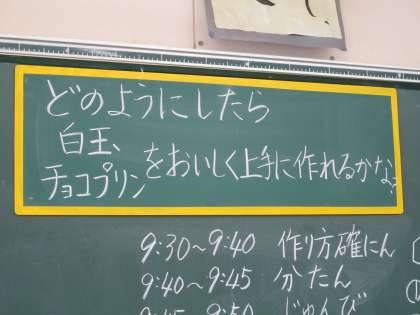 どのようにしたら
白玉、
チョコプリン
をおいしく上手に作れるかな?
9:30~9:40 作り方確にん
9:40~9:45 分たん
9:45~9:50 じゅんび